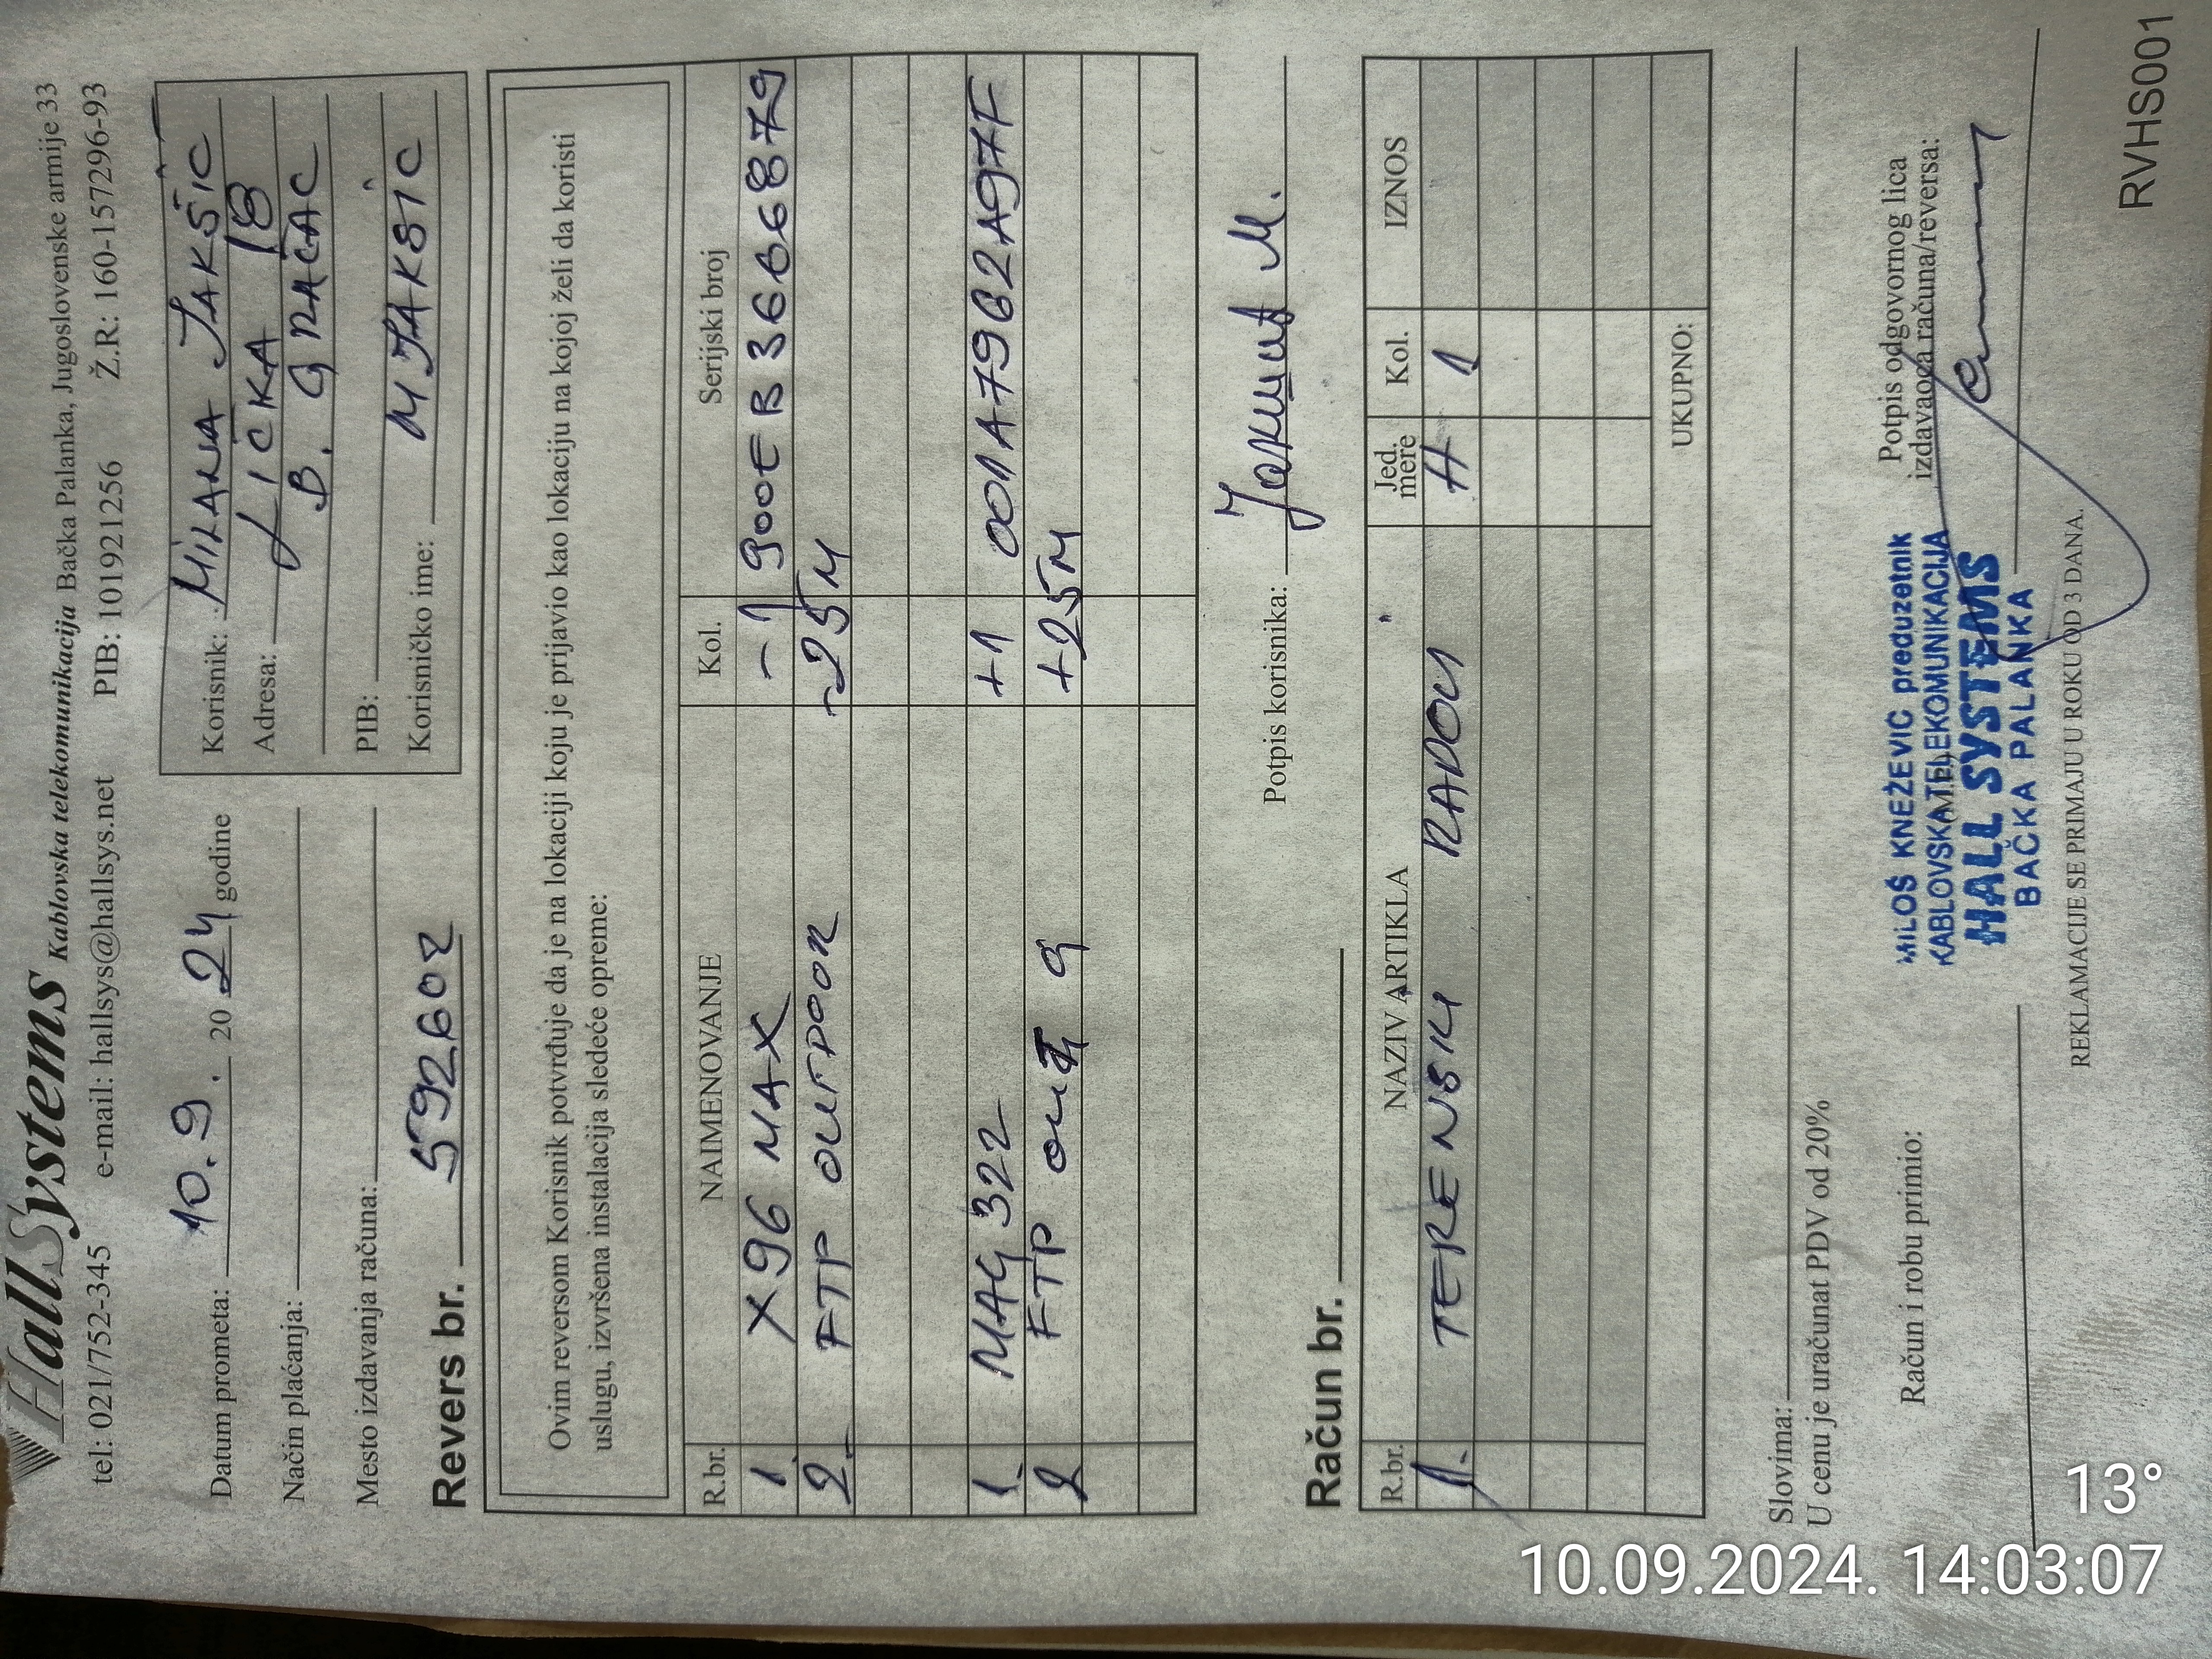 HallSystems Kablovska telekomunikacija Bačka Palanka, Jugoslovenske armije 33
tel: 021/752-345 e-mail: hallsys@hallsys.net PIB: 101921256 Ž.R: 160-157296-93
Datum prometa: 10.9. 2024 godine
Način plaćanja:
Mesto izdavanja računa:
Korisnik: MILANA JAKŠIĆ
Adresa: LIČKA 18
B. GRAČAC
PIB:
Korisničko ime: MJAKSIC
Revers br. 592602
Ovim reversom Korisnik potvrđuje da je na lokaciji koju je prijavio kao lokaciju na kojoj želi da koristi
uslugu, izvršena instalacija sledeće opreme:
R.br. NAIMENOVANJE Kol. Serijski broj
1. X96 MAX -1 900EB3666879
2. FTP OUTDOOR -25M
1. MAG 322 +1 001A7962A97F
2 FTP +25M
Potpis korisnika: Јакшић М.
Račun br.
R.br. NAZIV ARTIKLA Jed. mere Kol. IZNOS
1. TERENSKI RADOVI H 1
UKUPNO:
Slovima:
U cenu je uračunat PDV od 20%
Račun i robu primio:
M.P.
Potpis odgovornog lica
izdavaoca računa/reversa:
MILOŠ KNEŽEVIĆ preduzetnik
KABLOVSKA TELEKOMUNIKACIJA
HALL SYSTEMS
BAČKA PALANKA
REKLAMACIJE SE PRIMAJU U ROKU OD 3 DANA.
RVHS001
13°
10.09.2024. 14:03:07